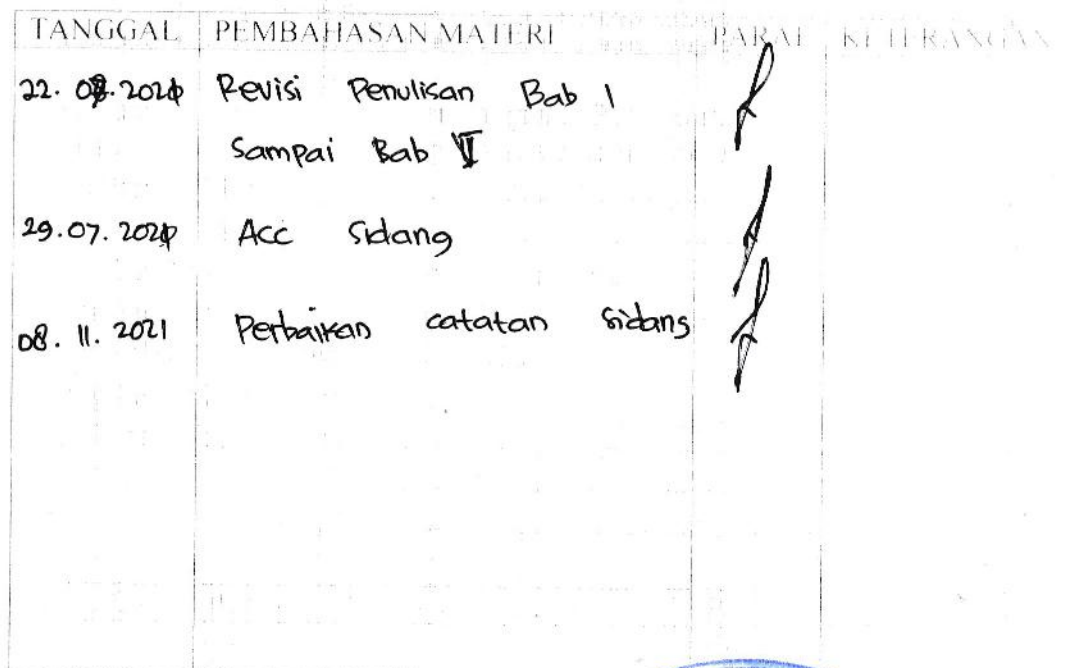 TANGGAL PEMBAHASAN MATERI PARAF KETERANGAN
22. 07. 2021 Revisi Penulisan Bab 1
Sampai Bab VI
29.07.2021 Acc Sidang
08. 11. 2021 Perbaikan catatan sidang